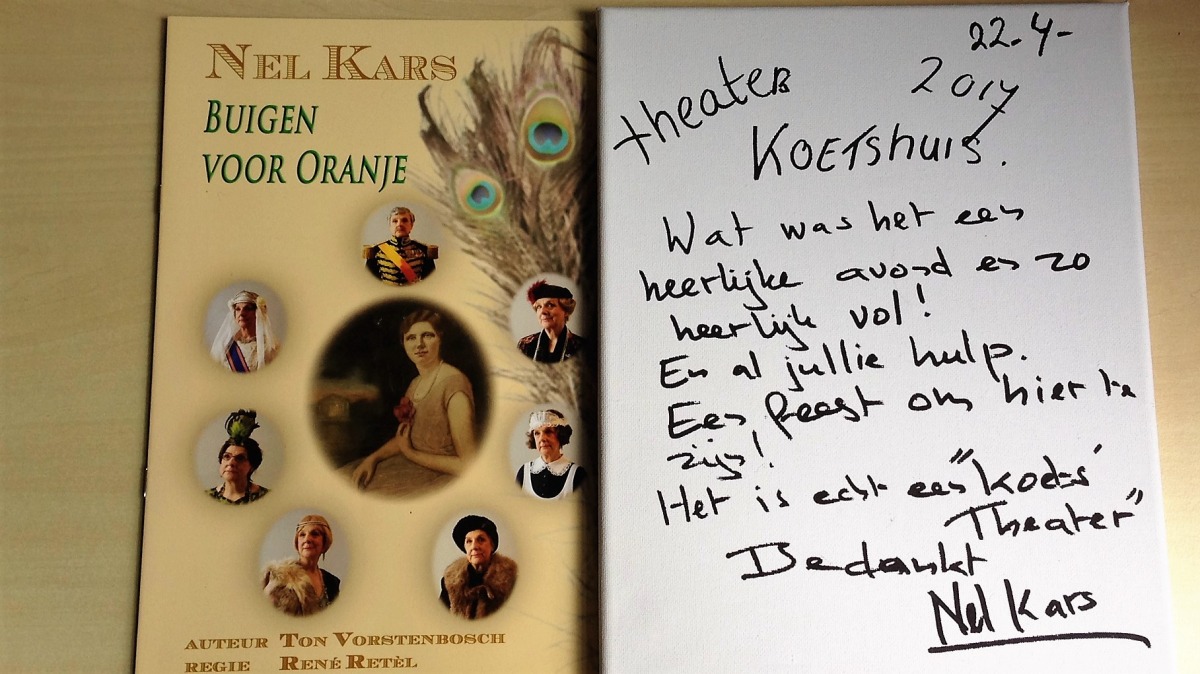 NEL KARS
BUIGEN
VOOR ORANJE
AUTEUR TON VORSTENBOSCH
REGIE RENÉ RETÈL
22-4-
2017
theater
KOETShuis.
Wat was het een
heerlijke avond en zo
heerlijk vol!
En al jullie hulp.
Een feest om hier te
zijn!
Het is echt een "koets
Theater"
Bedankt
Nel Kars